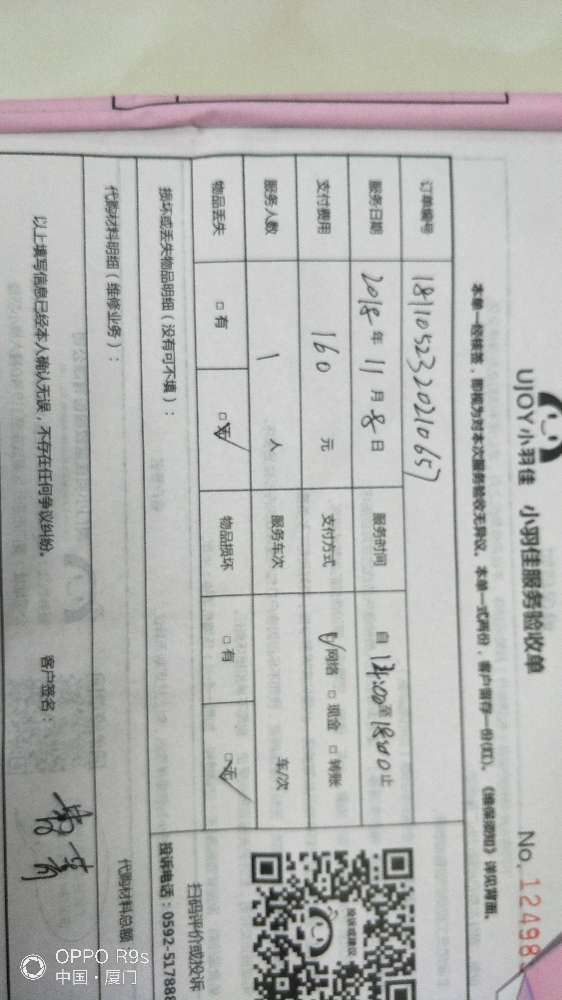 UJOY小羽佳 小羽佳服务验收单 No. 12498
本单一经核签，即视为对本次服务验收无异议。本单一式两份，客户留存一份(红)。《维保须知》详见背面。
订单编号 1811052320210657
服务日期 2018年11月8日 服务时间 自14:00至18:00止
支付费用 160元 支付方式 ☑网络 □现金 □转账
服务人数 1人 服务车次 车/次
物品丢失 □有 ☑无 物品损坏 □有 ☑无
损坏或丢失物品明细(没有可不填)：
代购材料明细(维修业务)： 代购材料总额
以上填写信息已经本人确认无误，不存在任何争议纠纷。 客户签名：
投诉或建议
扫码评价或投诉
投诉电话：0592-517888
OPPO R9s
中国·厦门